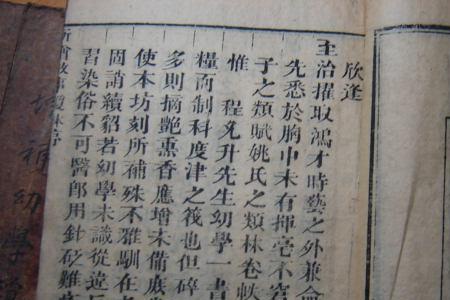 欣逢
主治擢取鴻才時藝之外兼
先悉於胸中未有揮毫不窘
子之類賦姚氏之類林卷帙
惟 程允升先生幼學一書
糧而制科度津之筏也但碎
多則摘艷熏香應增未備庶
使本坊刻所補殊不雅馴在
固誚續貂若幼學未識從違
習染俗不可醫郎用針砭難
新增故事瓊林序
幼學